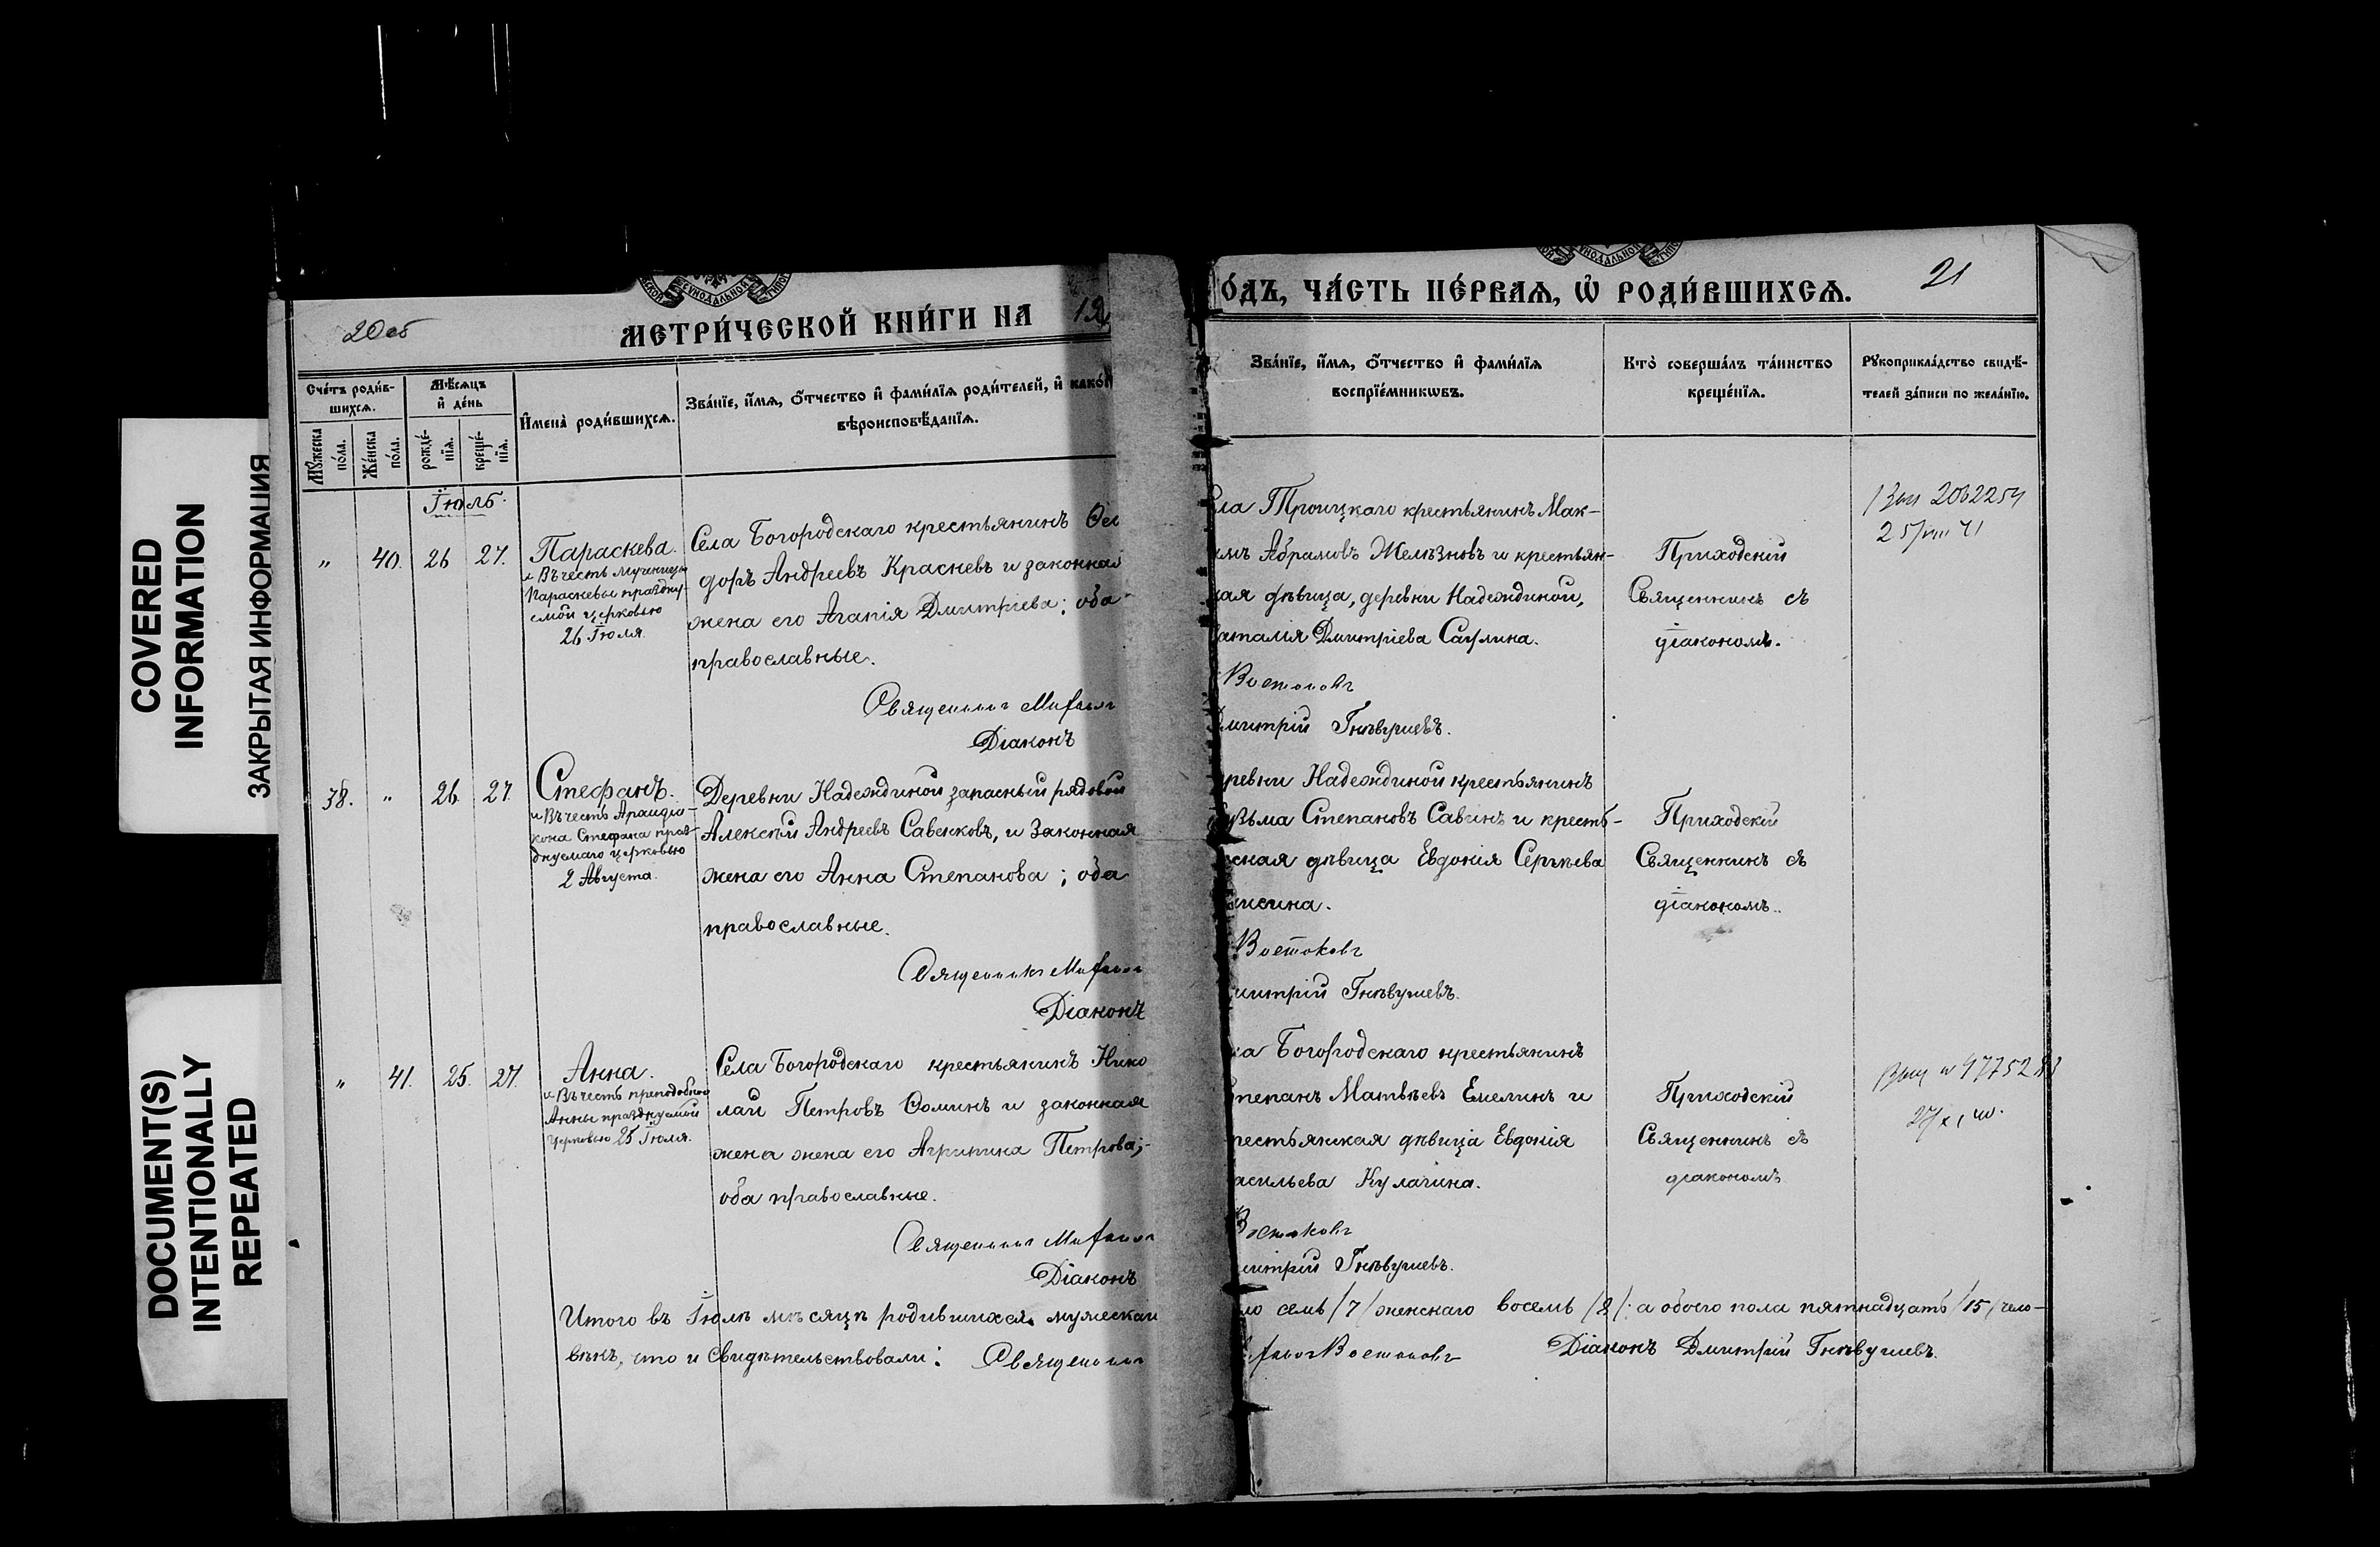 COVERED
INFORMATION
ЗАКРЫТАЯ ИНФОРМАЦИЯ
DOCUMENT(S)
INTENTIONALLY
REPEATED
20 об
МЕТРИ́ЧЕСКОЙ КНИ́ГИ НА
Сче́тъ роди́в-
шихсѧ.
Мѣ́сѧцъ
и҆ де́нь
Мꙋ́жеска
по́ла.
Же́нска
по́ла.
рожде́-
нїѧ.
креще́-
нїѧ.
И҆мена̀ роди́вшихсѧ.
Зва́нїе, и҆́мѧ, о҆́тчество и҆ фами́лїѧ роди́телей, и҆ како́
вѣроисповѣ́данїѧ.
Іюль.
" 40. 26 27. Параскева.
и Въ честь мученицы
Параскевы праздну-
емой церковью
26 Іюля.
Села Богородскаго крестьянинъ Ѳео
доръ Андреевъ Красневъ и законная
жена его Агапія Дмитріева; оба
православные.
Священникъ Михаилъ
Діаконъ
38. " 26 27. Стефанъ.
и Въ честь Архидіа-
кона Стефана праз-
днуемаго церковью
2 Августа.
Деревни Надеждиной запасный рядовой
Алексѣй Андреевъ Савенковъ, и законная
жена его Анна Степанова; оба
православные.
Священникъ Михаилъ
Діаконъ
" 41. 25. 27. Анна.
и Въ честь преподобной
Анны празднуемой
церковью 25 Іюля.
Села Богородскаго крестьянинъ Нико
лай Петровъ Ѳоминъ и законная
жена жена его Агрипина Петрова;
оба православные.
Священникъ Михаилъ
Діаконъ
Итого въ Іюлѣ мѣсяцѣ родившихся мужескаго
вѣкъ, что и свидѣтельствовали: Священникъ
о́дъ, ЧА́СТЬ ПЕ́РВАѦ, Ѡ҆ РОДИ́ВШИХСѦ.
21
Зва́нїе, и҆́мѧ, о҆́тчество и҆ фами́лїѧ
воспрїе́мникѡвъ.
Кто̀ соверша́лъ та́инство
креще́нїѧ.
Рꙋкоприкла́дство свидѣ́-
телей за́писи по жела́нїю.
ла Троицкаго крестьянинъ Мак-
имъ Абрамовъ Желѣзновъ и крестьян-
кая дѣвица, деревни Надеждиной,
аталія Дмитріева Саулина.
Востоковъ
Дмитрій Гнѣвушевъ.
Приходскій
Священникъ съ
діакономъ.
2062254
ревни Надеждиной крестьянинъ
узьма Степановъ Савинъ и кресть-
нская дѣвица Евдокія Сергѣева
Востоковъ
митрій Гнѣвушевъ.
Приходскій
Священникъ съ
діакономъ.
ла Богородскаго крестьянинъ
тепанъ Матвѣевъ Емелинъ и
рестьянская дѣвица Евдокія
асильева Кулагина.
Востоковъ
митрій Гнѣвушевъ.
Приходскій
Священникъ съ
діакономъ
ло семь /7/ женскаго восемь /8/: а обоего пола пятнадцать /15/ чело-
хаилъ Востоковъ Діаконъ Дмитрій Гнѣвушевъ.